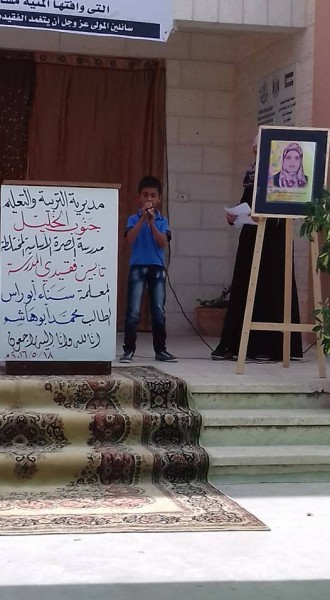 التي وافتها المنية
سائلين المولى عز وجل أن يتغمد الفقيدة
مديرية التربية والتعليم
جنوب الخليل
مدرسة الصرة الأساسية المختلطة
تأبين فقيدي المدرسة
المعلمة سناء أبو راس
الطالب محمد أبو هاشم
انا لله وانا اليه راجعون
٢٠١٦/٥/١٨